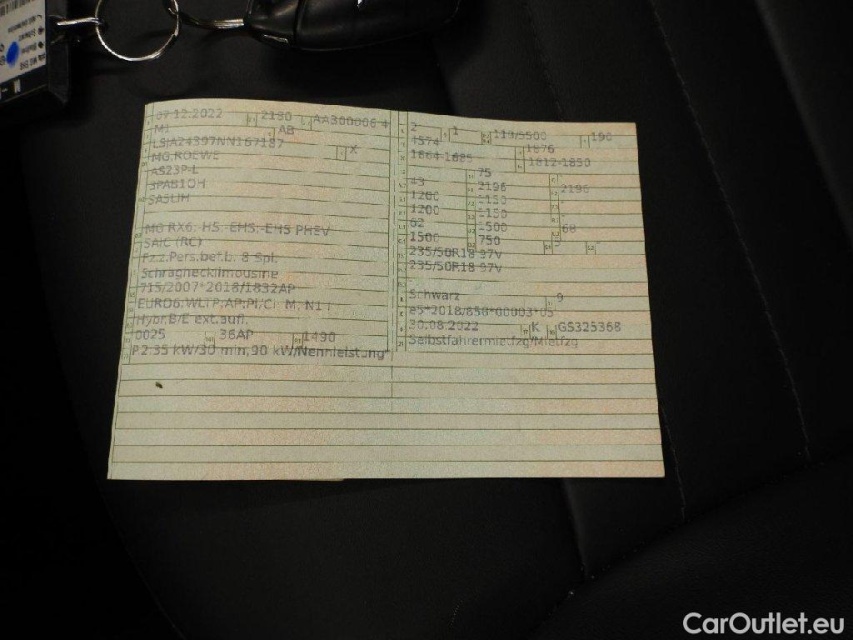 07.12.2022 2190 AA300006 4
M1 AB
X
MG ROEWE
AS23P-L
SPAB1OH
SA5LIH
MG RX6, HS, EHS,-EHS PHEV
SAIC (RC)
Fz.z.Pers.bef.b. 8 Spl.
Schräghecklimousine
715/2007*2018/1832AP
EURO6;WLTP;AP;PI/CI M, N1 I
Hybr.B/E ext.aufl.
0025 36AP 1490
P2:35 kW/30 min,90 kW/Nennleistung*
2 1 119/5500 190
4574 1876
1664-1685 1812-1850
75
43 2196 2196
1200 1150
1200 1150
62 1500 68
1500 750 5
235/50R18 97V
235/50R18 97V
Schwarz 9
e5*2018/858*00003*05
30.08.2022 K GS325368
Selbstfahrermietfzg/Mietfzg
CarOutlet.eu